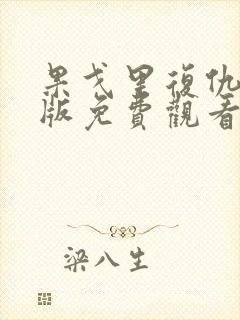 果戈里復仇
版免費觀看
梁八生